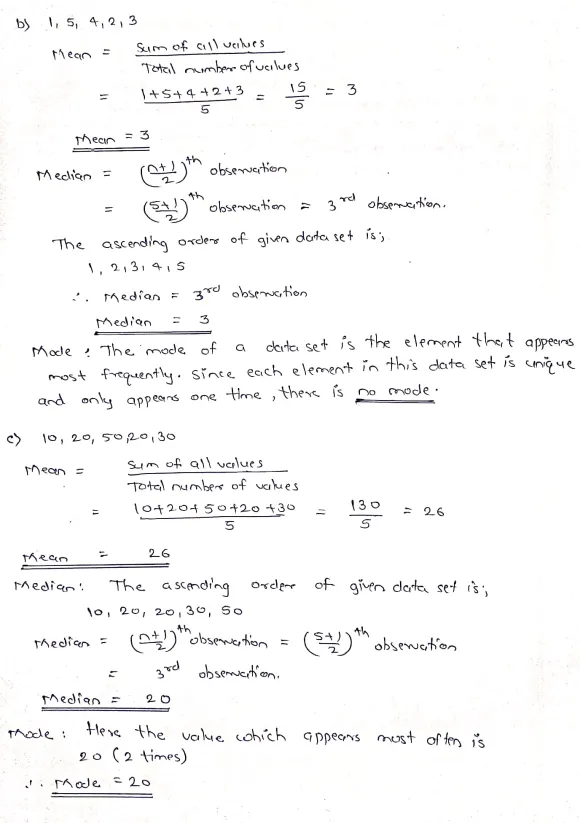 b) 1, 5, 4, 2, 3
Mean = Sum of all values / Total number of values
= 1+5+4+2+3 / 5 = 15 / 5 = 3
Mean = 3
Median = (n+1 / 2)th observation
= (5+1 / 2)th observation = 3rd observation.
The ascending order of given data set is;
1, 2, 3, 4, 5
∴ Median = 3rd observation
Median = 3
Mode : The mode of a data set is the element that appears
most frequently. Since each element in this data set is unique
and only appears one time, there is no mode.
c) 10, 20, 50, 20, 30
Mean = Sum of all values / Total number of values
= 10+20+50+20+30 / 5 = 130 / 5 = 26
Mean = 26
Median: The ascending order of given data set is;
10, 20, 20, 30, 50
Median = (n+1 / 2)th observation = (5+1 / 2)th observation
= 3rd observation.
Median = 20
Mode : Here the value which appears most often is
20 (2 times)
∴ Mode = 20